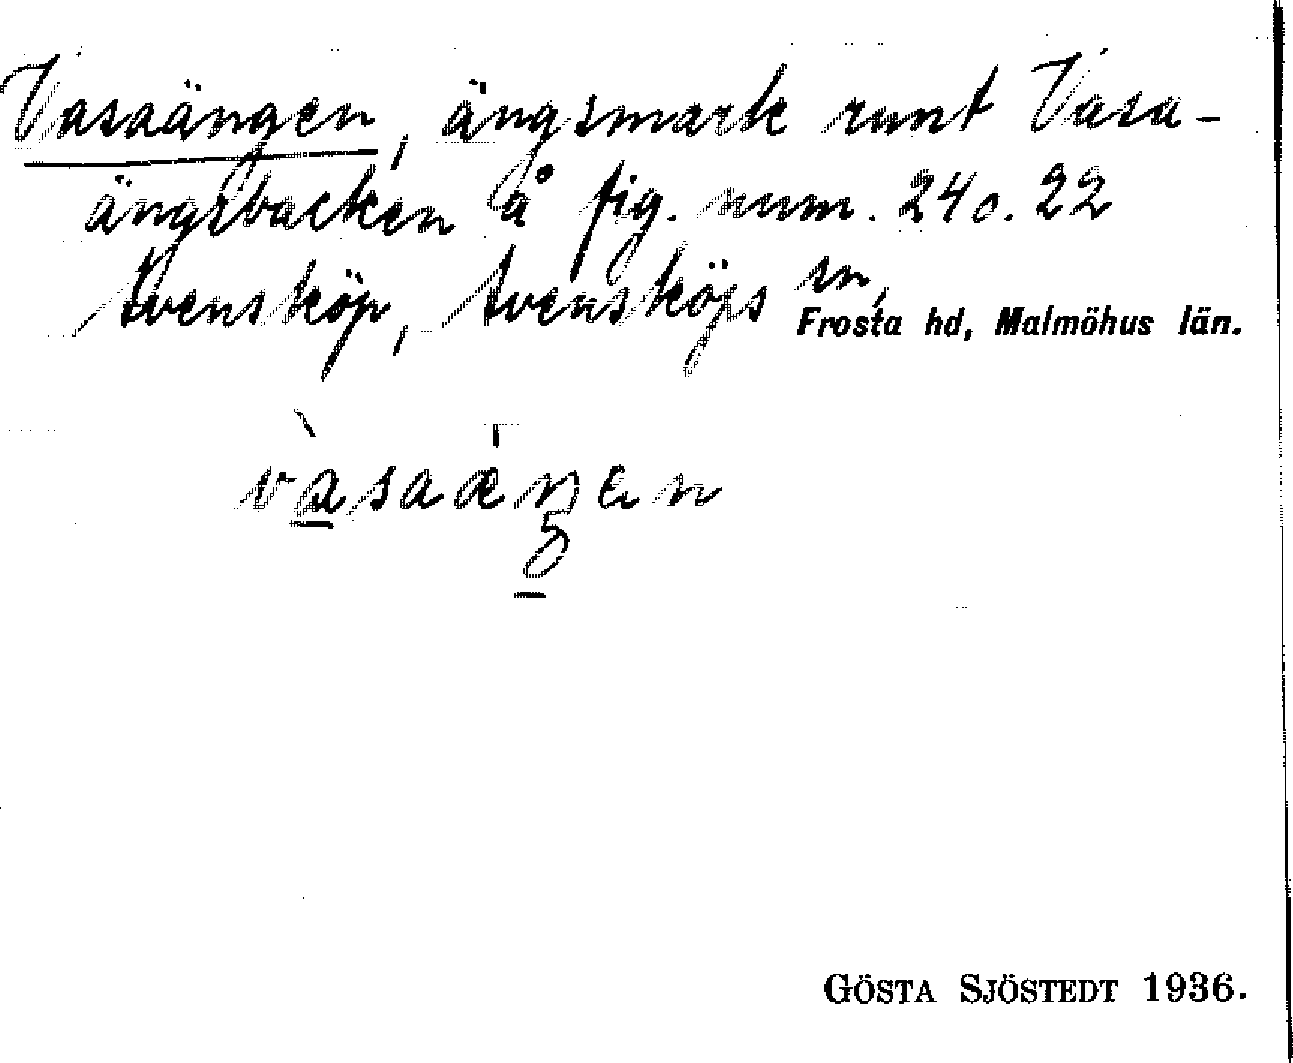 Vasaängen, ängsmark runt Vasa-
ängsbacken å fig. num. 24 o. 22
Svensköp, Svensköps sn,
Frosta hd, Malmöhus län.
vàsaæŋen
GÖSTA SJÖSTEDT 1936.